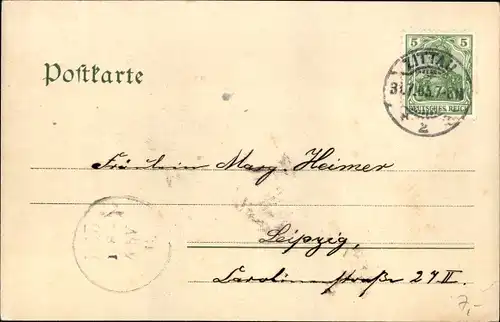 5 5
ZITTAU
Postkarte
31.7.03.7-8N
DEUTSCHES REICH
2
Fräulein Marg. Heimer
Leipzig,
Carolinenstraße 27 II.
7,-